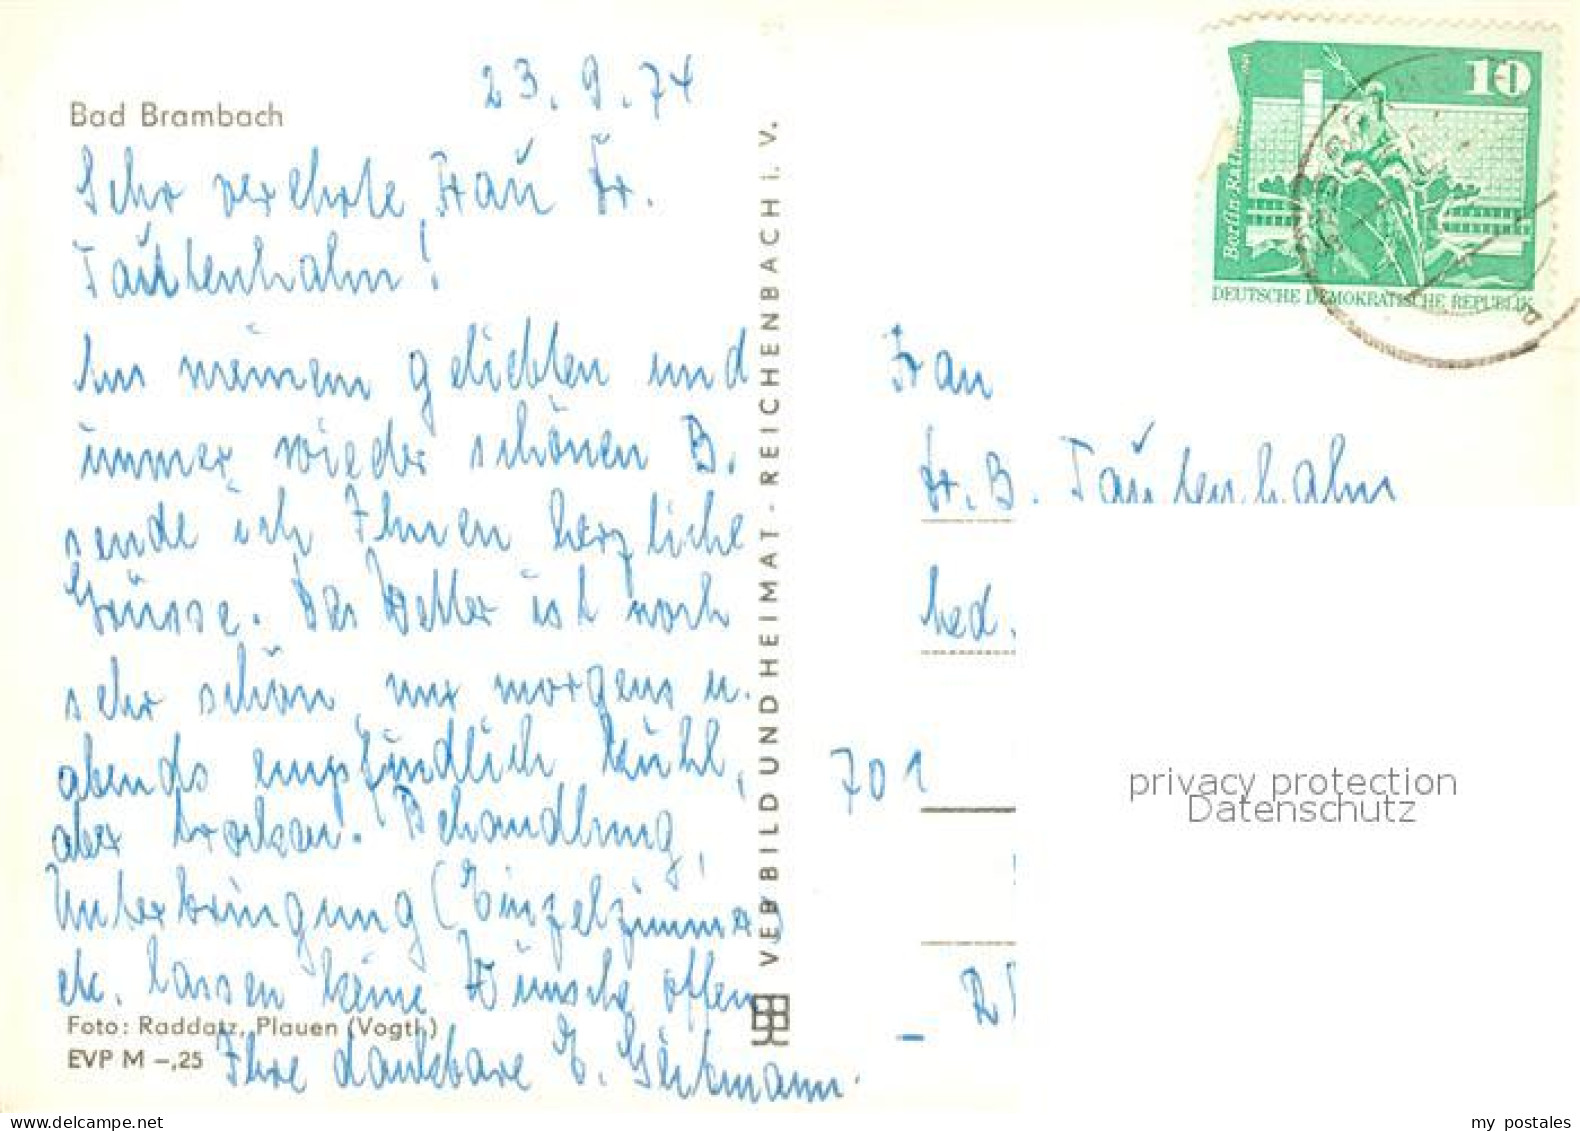 Bad Brambach
23.9.74
Sehr verehrte Frau Dr.
Tautenhahn!
Aus meinem geliebten und
immer wieder schönen B.
sende ich Ihnen herzliche
Grüsse. Das Wetter ist noch
sehr schön, nur morgens u.
abends empfindlich kühl,
aber trocken. Behandlung,
Unterbringung (Einzelzimmer)
etc. lassen keine Wünsche offen
Foto: Raddatz, Plauen (Vogtl.)
EVP M –,25
Ihre dankbare E.
VEB BILD UND HEIMAT · REICHENBACH i. V.
10
Berlin
DEUTSCHE DEMOKRATISCHE REPUBLIK
Frau
Dr. B. Tautenhahn
701
privacy protection
Datenschutz
my postales